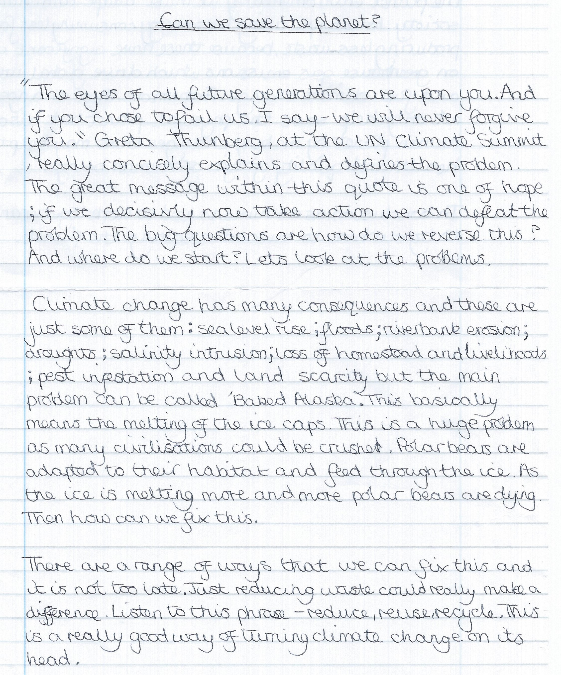 Can we save the planet?
"The eyes of all future generations are upon you. And
if you chose to fail us, I say-we will never forgive
you." Greta Thunberg, at the UN Climate Summit
, really concisely explains and defines the problem.
The great message within this quote is one of hope
; if we decisivly now take action we can defeat the
problem. The big questions are how do we reverse this?
And where do we start? Lets look at the problems.
Climate change has many consequences and these are
just some of them: sea level rise; floods; riverbank erosion;
droughts; salinity intrusion; loss of homestead and livelihoods
; pest infestation and land scarcity but the main
problem can be called 'Baked Alaska. This basically
means the melting of the ice caps. This is a huge problem
as many civilisations could be crushed. Polar bears are
adapted to their habitat and feed through the ice. As
the ice is melting more and more polar bears are dying.
Then how can we fix this.
There are a range of ways that we can fix this and
it is not too late. Just reducing waste could really make a
difference. Listen to this phrase - reduce, reuse, recycle. This
is a really good way of turning climate change on its
head.